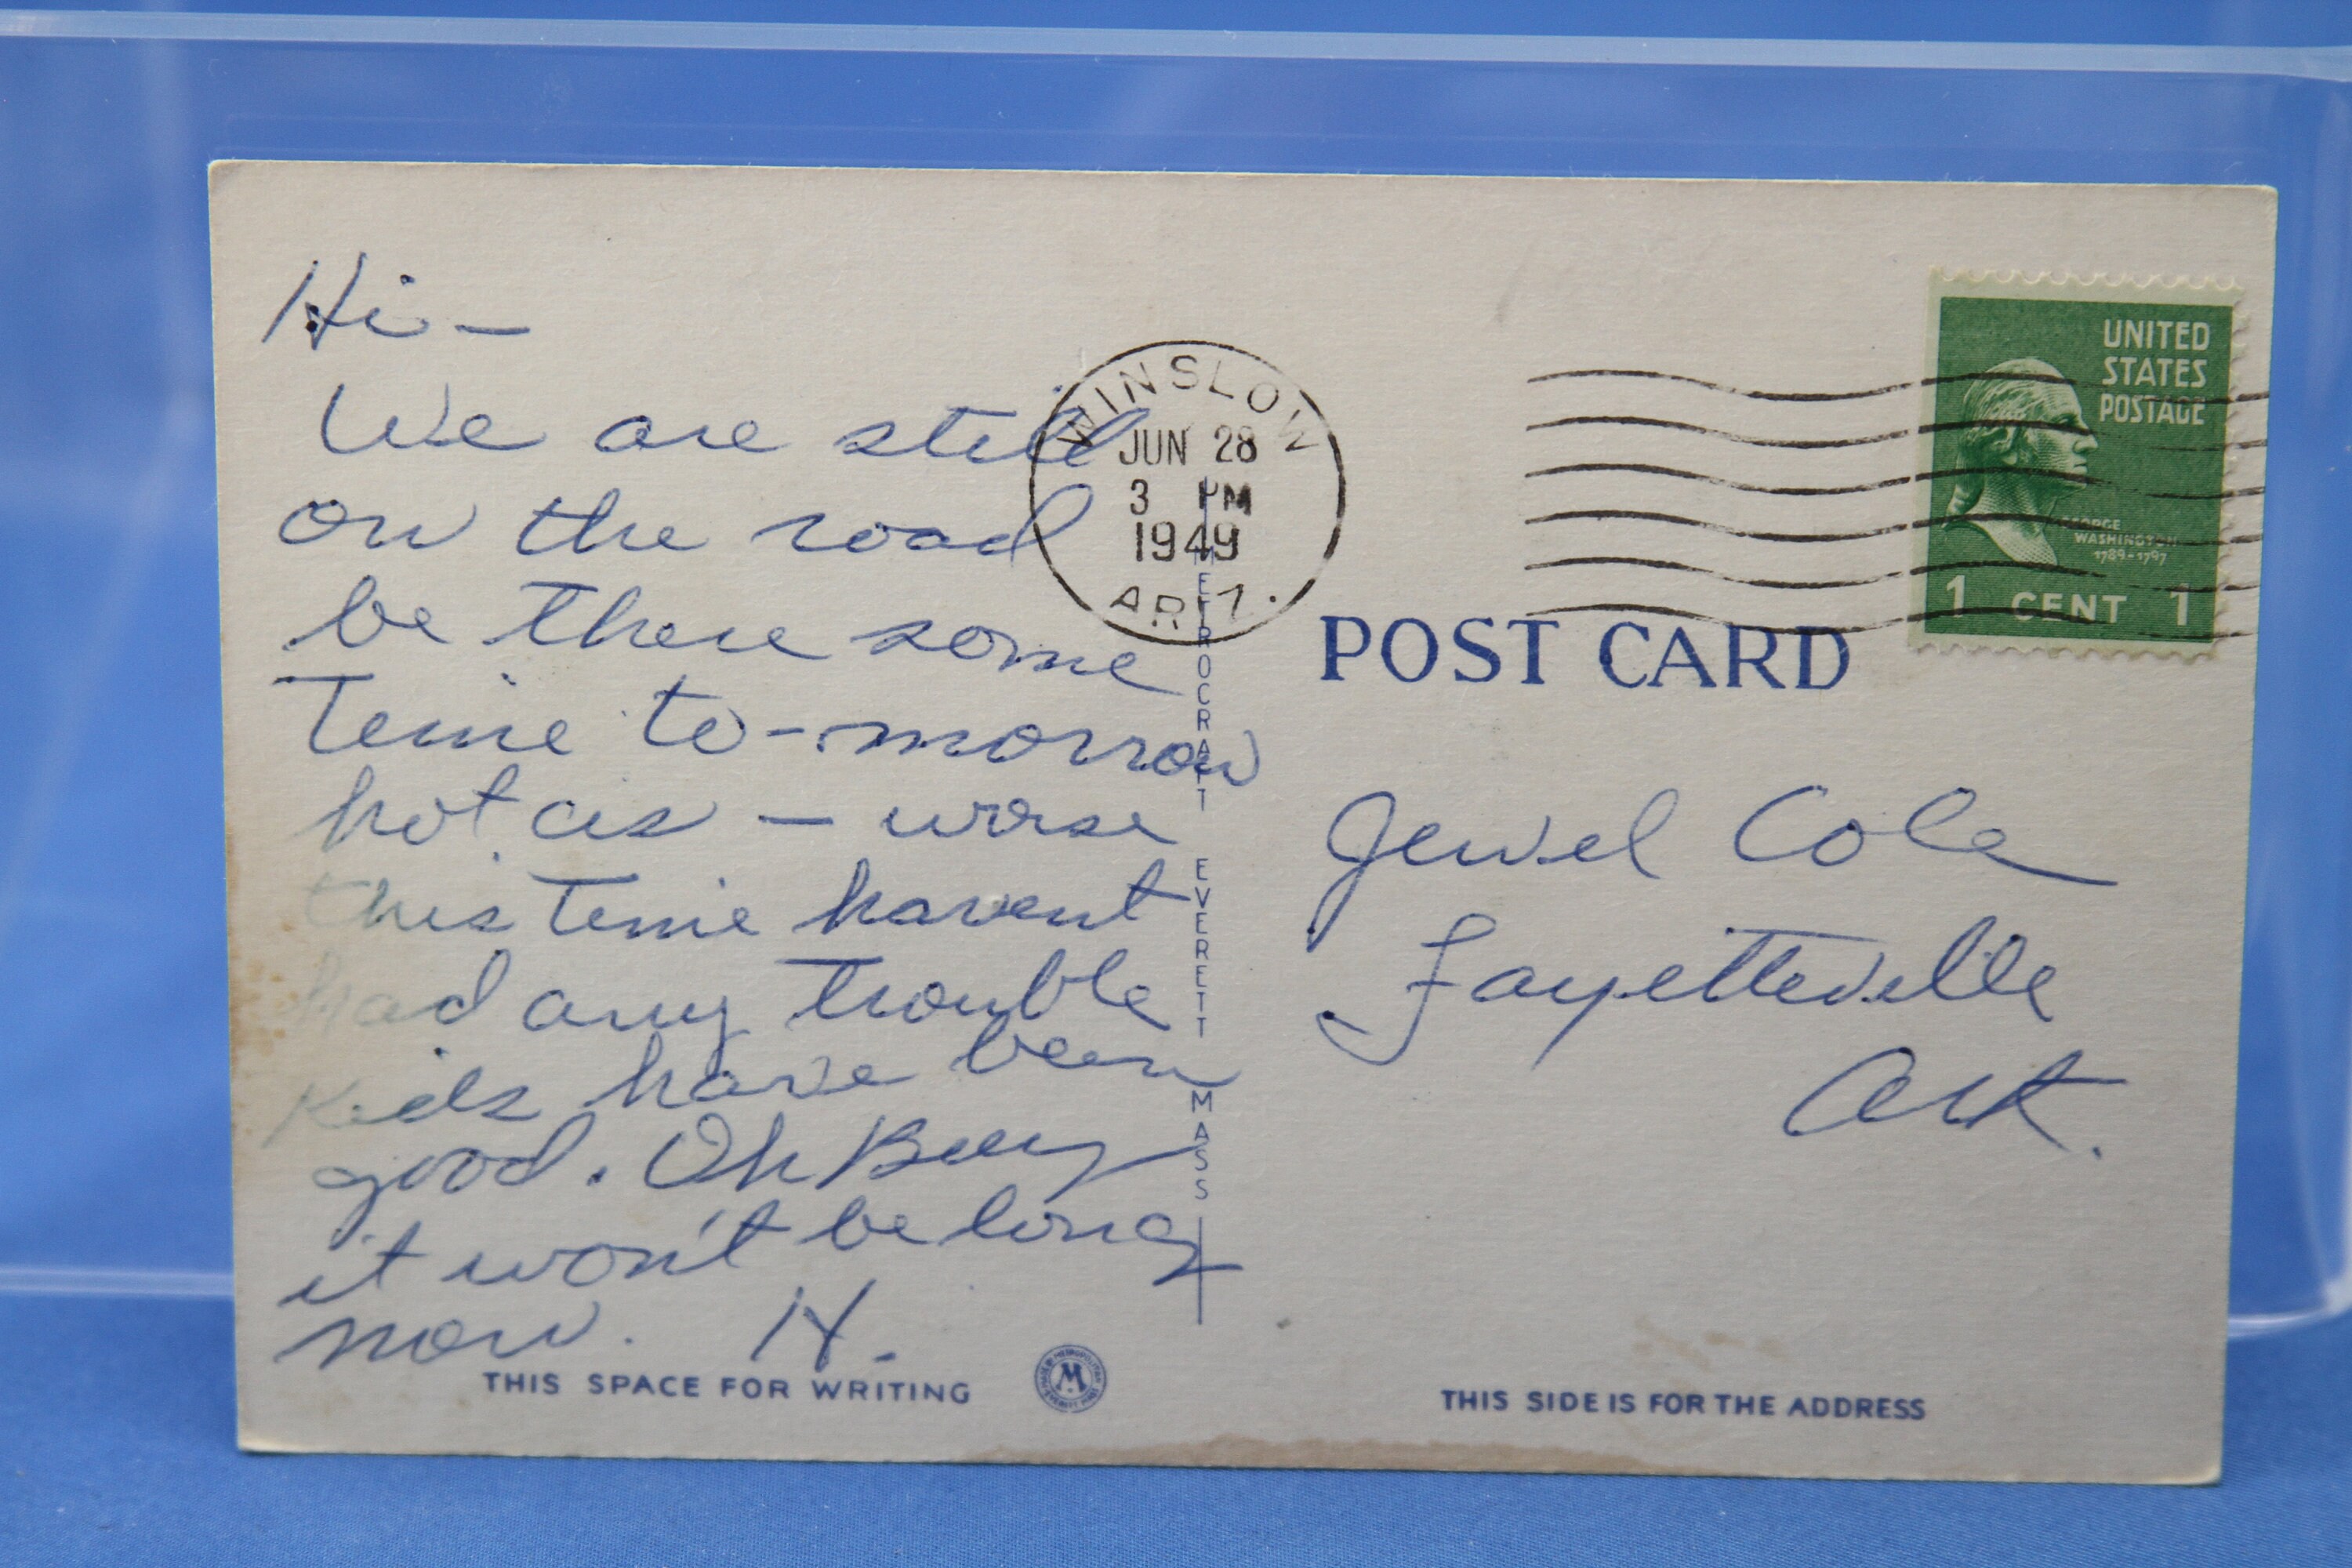 Hi -
We are still
on the road
be there some
Time to-morrow
hot as - worse
this Time havent
had any trouble
Kids have been
good. Oh Boy
it won't be long
now. H.
THIS SPACE FOR WRITING
WINSLOW
JUN 28
3 PM
1949
ARIZ.
METROCRAFT EVERETT MASS
M
POST CARD
UNITED
STATES
POSTAGE
GEORGE
WASHINGTON
1789-1797
1 CENT 1
Jewel Cole
Fayetteville
Ark.
THIS SIDE IS FOR THE ADDRESS